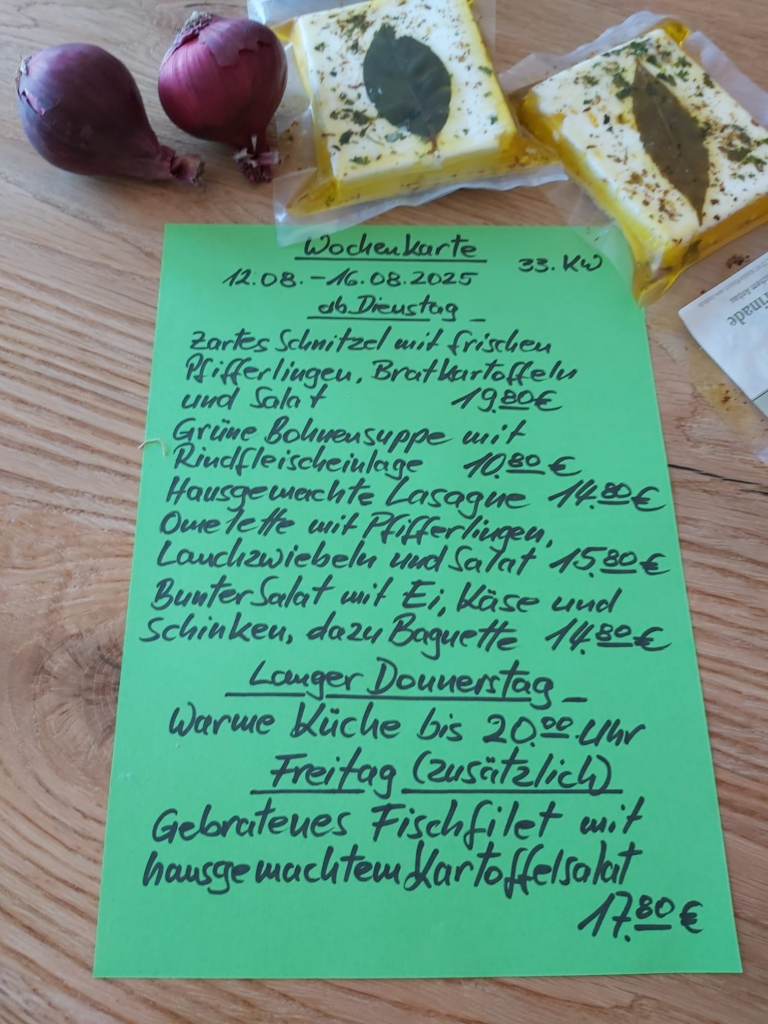 Wochenkarte
12.08.-16.08.2025 33. KW
ab Dienstag
zartes Schnitzel mit frischen
Pfifferlingen, Bratkartoffeln
und Salat 19.80€
Grüne Bohnensuppe mit
Rindfleischeinlage 10.80€
Hausgemachte Lasagne 14.80€
Omelette mit Pfifferlingen,
Lauchzwiebeln und Salat 15.80€
Bunter Salat mit Ei, Käse und
Schinken, dazu Baguette 14.80€
Langer Donnerstag
Warme Küche bis 20.00 Uhr
Freitag (zusätzlich)
Gebratenes Fischfilet mit
hausgemachtem Kartoffelsalat
17.80€